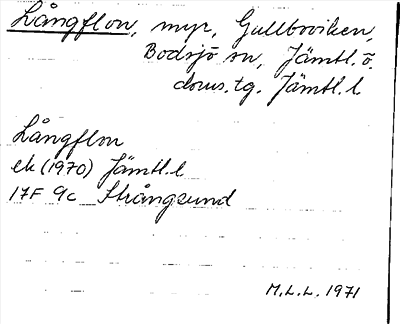 Långflon, myr, Gullboviken,
Bodsjö sn, Jämtl. ö.
doms. tg. Jämtl. l
Långflon
ek (1970) Jämtl. l
17F 9c Strångsund
M.L.L. 1971